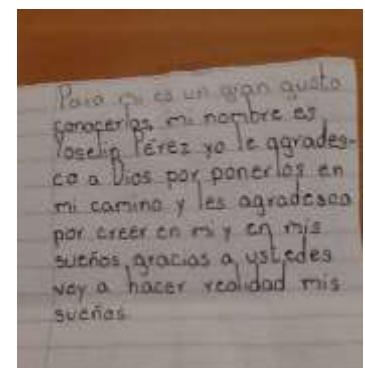 Para mi es un gran gusto
conocerlos mi nombre es
Yoselin Pérez yo le agrades-
co a Dios por ponerlos en
mi camino y les agradesco
por creer en mi y en mis
sueños, gracias a ustedes
voy a hacer realidad mis
sueños.